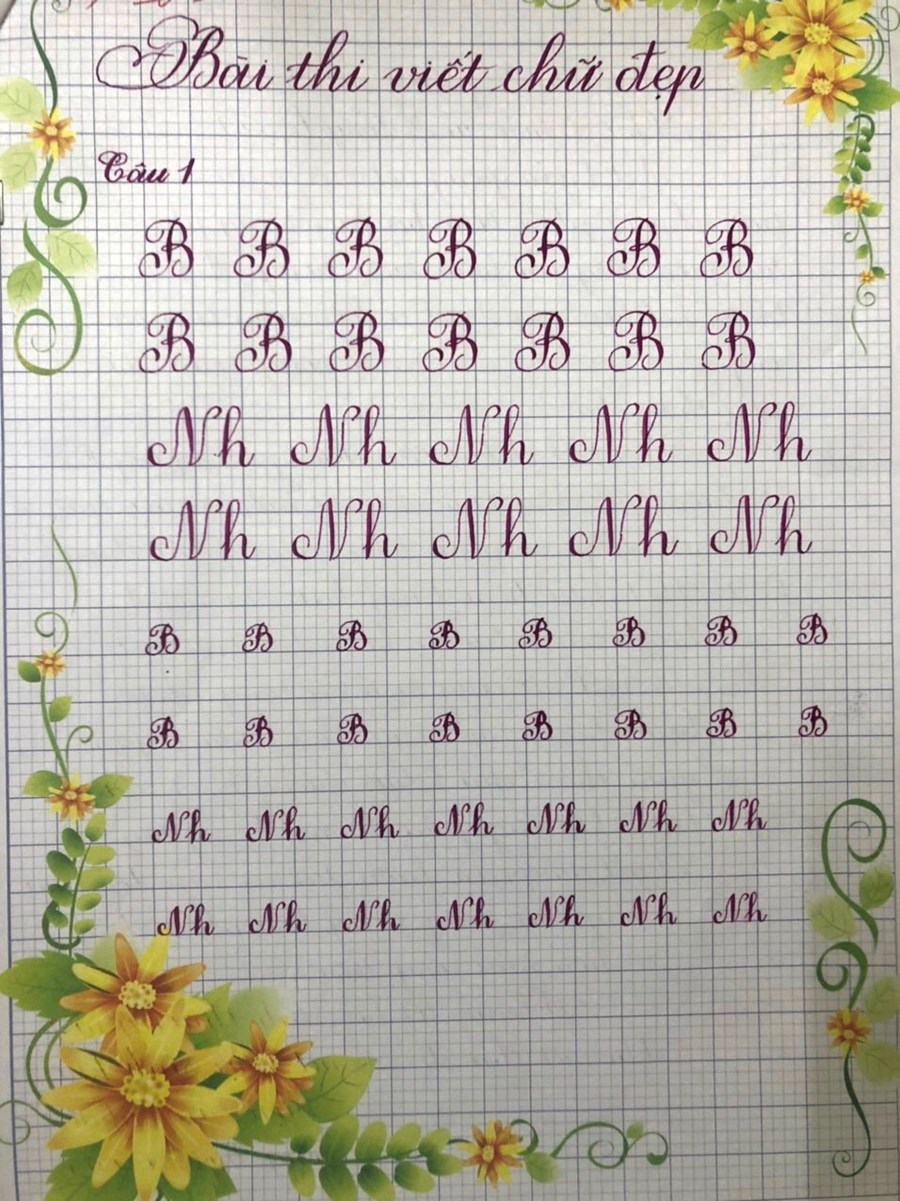 Bài thi viết chữ đẹp
Câu 1
B B B B B B B
B B B B B B B
Nh Nh Nh Nh Nh
Nh Nh Nh Nh Nh
B B B B B B B B
B B B B B B B B
Nh Nh Nh Nh Nh Nh Nh
Nh Nh Nh Nh Nh Nh Nh